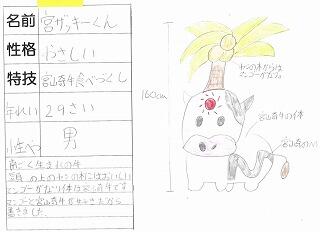 名前 宮ザッキーくん
性格 やさしい
特技 宮崎牛食べづくし
年れい 29さい
性べつ 男
頭の上のヤシの木にはおいしい
マンゴーがなり体は宮崎牛です
マンゴーと宮崎牛がすきだから
書きました
160cm
ヤシの木からは
マンゴーがなる。
宮崎牛の体